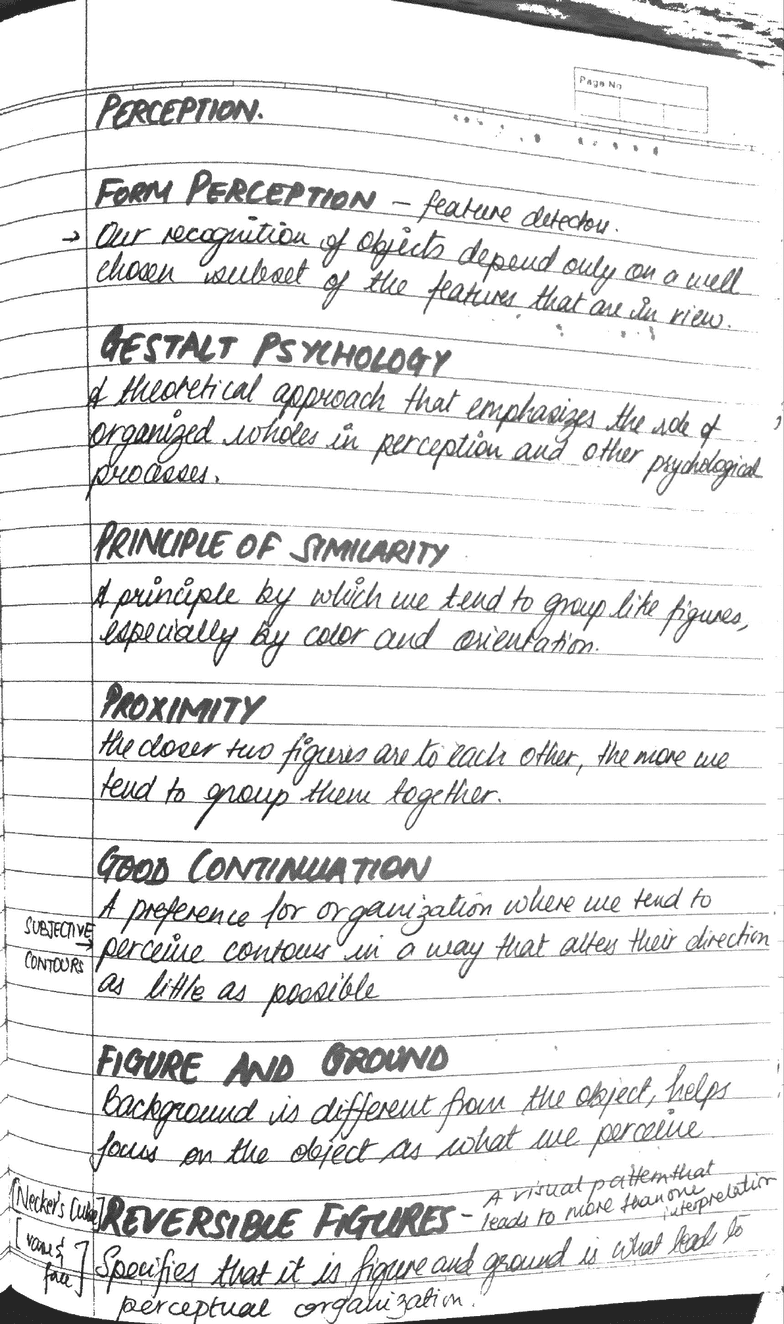 Page No
PERCEPTION.
FORM PERCEPTION – feature detectou.
→ Our recognition of objects depend only on a well
chosen subset of the features that are in view.
GESTALT PSYCHOLOGY
A theoretical approach that emphasizes the role of
organized wholes in perception and other psychological
processes.
PRINCIPLE OF SIMILARITY
A principle by which we tend to group like figures,
especially by color and orientation.
PROXIMITY
the closer two figures are to each other, the more we
tend to group them together.
GOOD CONTINUATION
A preference for organization where we tend to
SUBJECTIVE → perceive contours in a way that alters their direction
CONTOURS as little as possible
FIGURE AND GROUND
Background is different from the object, helps
focus on the object as what we perceive
[Necker's Cube] REVERSIBLE FIGURES – A visual pattern that
leads to more than one
interpretation
[vase & Specifies that it is figure and ground is what leads to
face] perceptual organization.